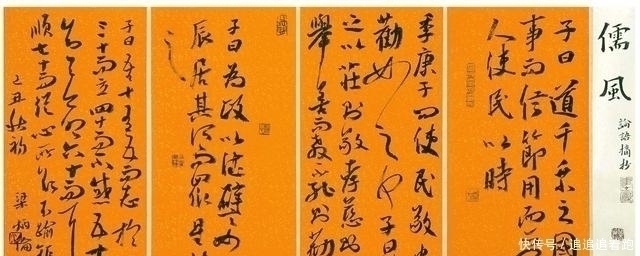 儒風
論語摘抄
子曰道千乘之國
事而信節用而
人使民以時
季康子問使民敬忠
勸如之何子曰
之以莊則敬孝慈
舉善而教不能則勸
子曰為政以德譬如
辰居其所而眾星共
之
子曰吾十五而志於
三十而立四十而不惑五十
知天命六十而耳
順七十而從心所欲不踰矩
乙丑秋初
快传号/追追追着跑